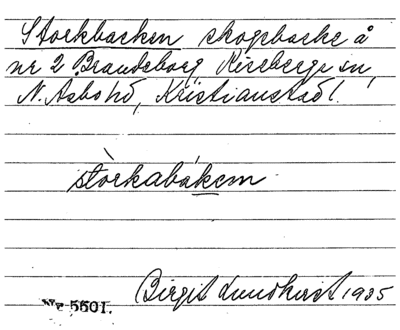 Storkbacken skogsbacke å
nr 2 Brandeborg Riseberga sn,
N. Åsbo hd, Kristianstads l.
stòrkabákem
Birgit Lundkvist 1935
Nr 5601.